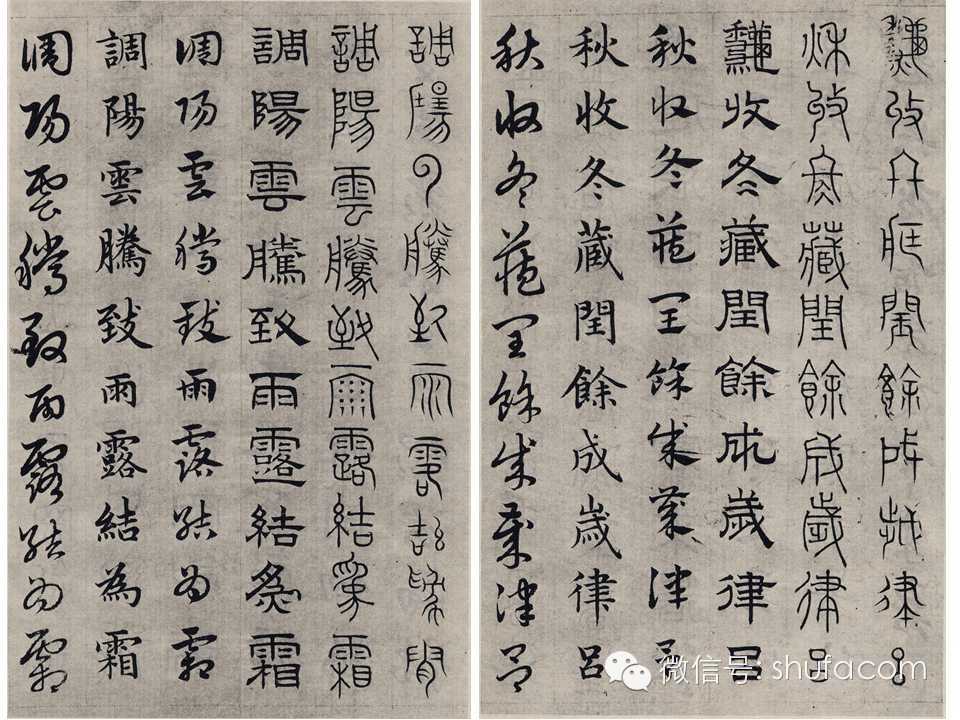 秋收冬藏閏餘成歲律呂
秋收冬藏閏餘成歲律呂
秋收冬藏閏餘成歲律呂
秋收冬藏閏餘成歲律呂
秋收冬藏閏餘成歲律呂
秋收冬藏閏餘成歲律呂
調陽雲騰致雨露結為霜
調陽雲騰致雨露結為霜
調陽雲騰致雨露結為霜
調陽雲騰致雨露結為霜
調陽雲騰致雨露結為霜
調陽雲騰致雨露結為霜
微信号: shufacom